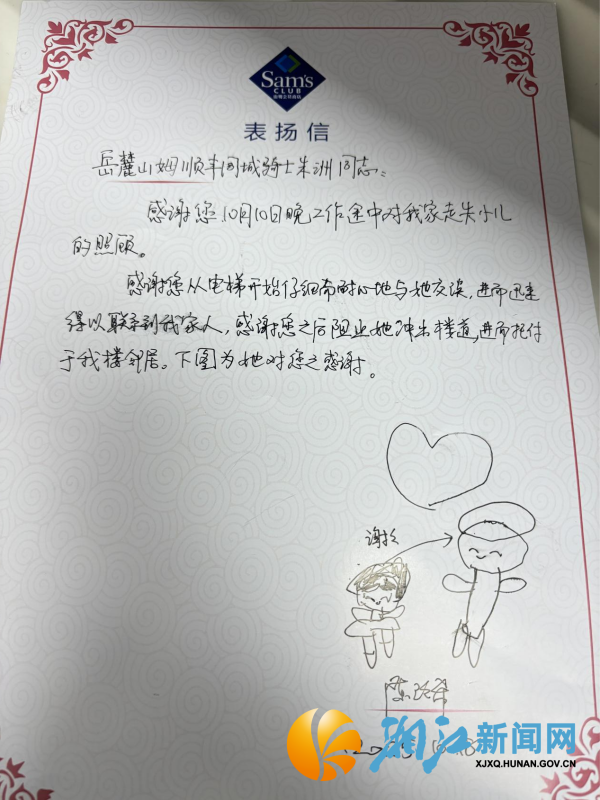 Sam's
CLUB
山姆会员商店
表扬信
岳麓山姆顺丰同城骑士朱洲同志：
感谢您10月10日晚工作途中对我家走失小儿
的照顾。
感谢您从电梯开始仔细而耐心地与她交谈，进而迅速
得以联系到我家人，感谢您之后阻止她冲出楼道，进而托付
于我楼邻居。下图为她对您之感谢。
谢谢
湘江新闻网
XJXQ.HUNAN.GOV.CN